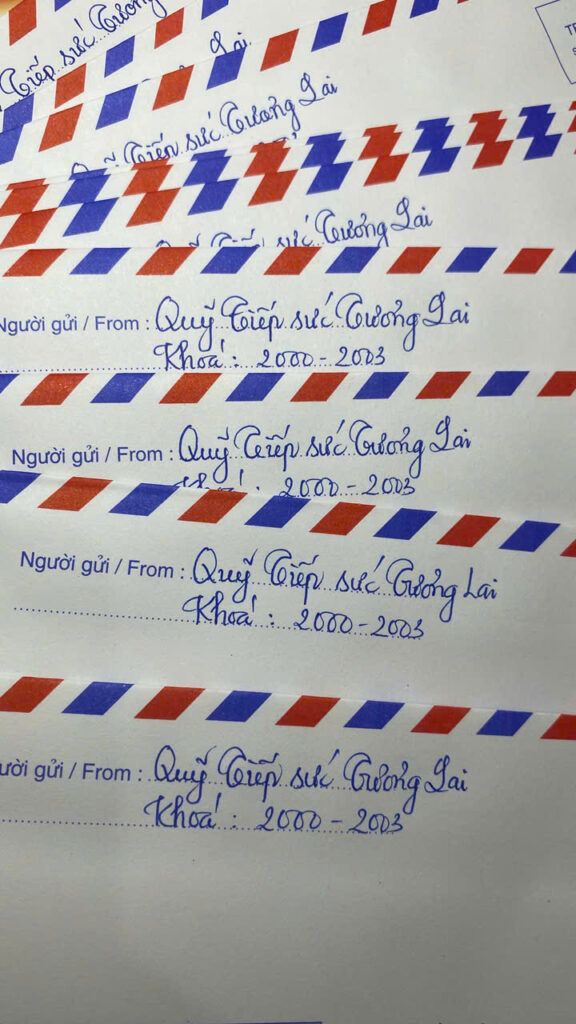 Tiếp sức Tương
Lai
Quỹ Tiếp sức Tương Lai
Quỹ Tiếp sức Tương Lai
Người gửi / From : Quỹ Tiếp sức Tương Lai
Khoá : 2000 - 2003
Người gửi / From : Quỹ Tiếp sức Tương Lai
Khoá : 2000 - 2003
Người gửi / From : Quỹ Tiếp sức Tương Lai
Khoá : 2000 - 2003
ười gửi / From : Quỹ Tiếp sức Tương Lai
Khoá : 2000 - 2003